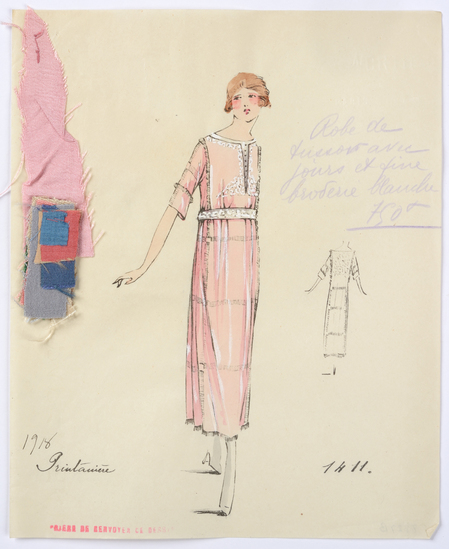 Robe de
tussor avec
jours et fine
broderie blanche
750f
1918
Printanière
1411.
PRIÈRE DE RENVOYER CE DESSIN